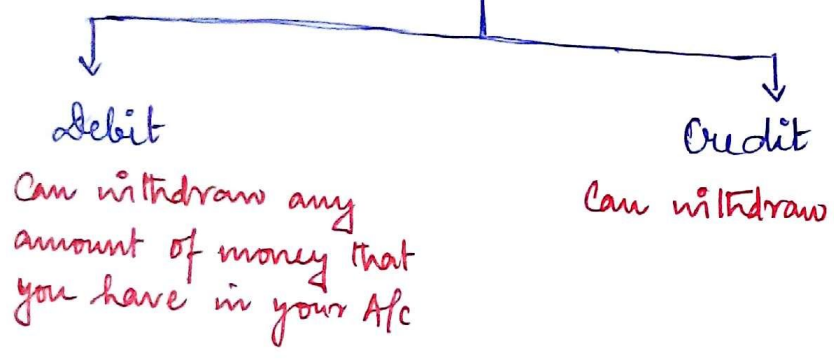 Debit
Credit
Can withdraw any
amount of money that
you have in your A/c
Can withdraw